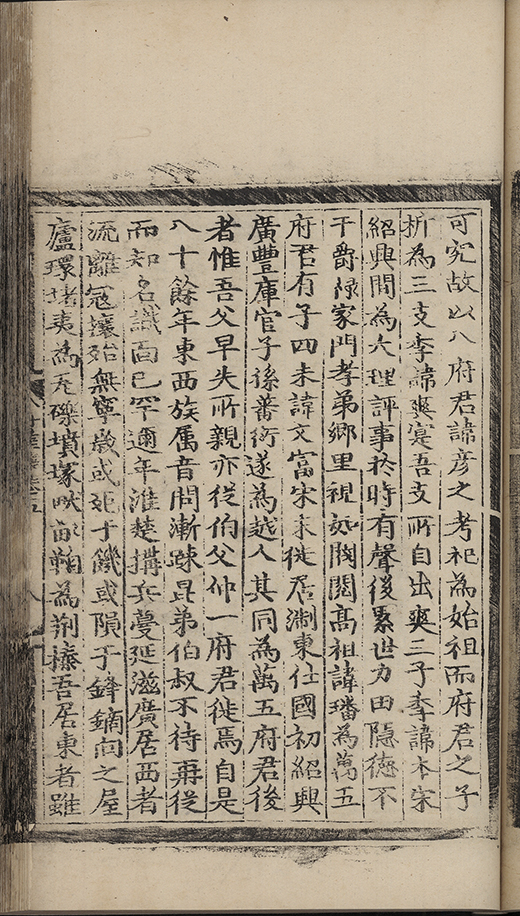 可究故以八府君諱彦之考祀為始祖而府君之子
析為三支季諱奭寔吾支所自出奭三子季諱本宋
紹興間為大理評事於時有聲後累世力田隐德不
干爵禄家門孝弟鄉里視如閥閱髙祖諱璠為萬五
府君有子四未諱文富宋末徙居淛東仕國初紹興
廣豐庫官子孫蕃衍遂為越人其同為萬五府君後
者惟吾父早失所親亦從伯父仲一府君徙焉自是
八十餘年東西族属音問漸踈昆弟伯叔不待再從
而知名識面已罕邇年淮楚搆兵蔓延滋廣居西者
流離冦攘殆無寧歳或死于饑或隕于鋒鏑向之屋
廬環堵夷為瓦礫墳塚畎畝鞠為荆榛吾居東者雖